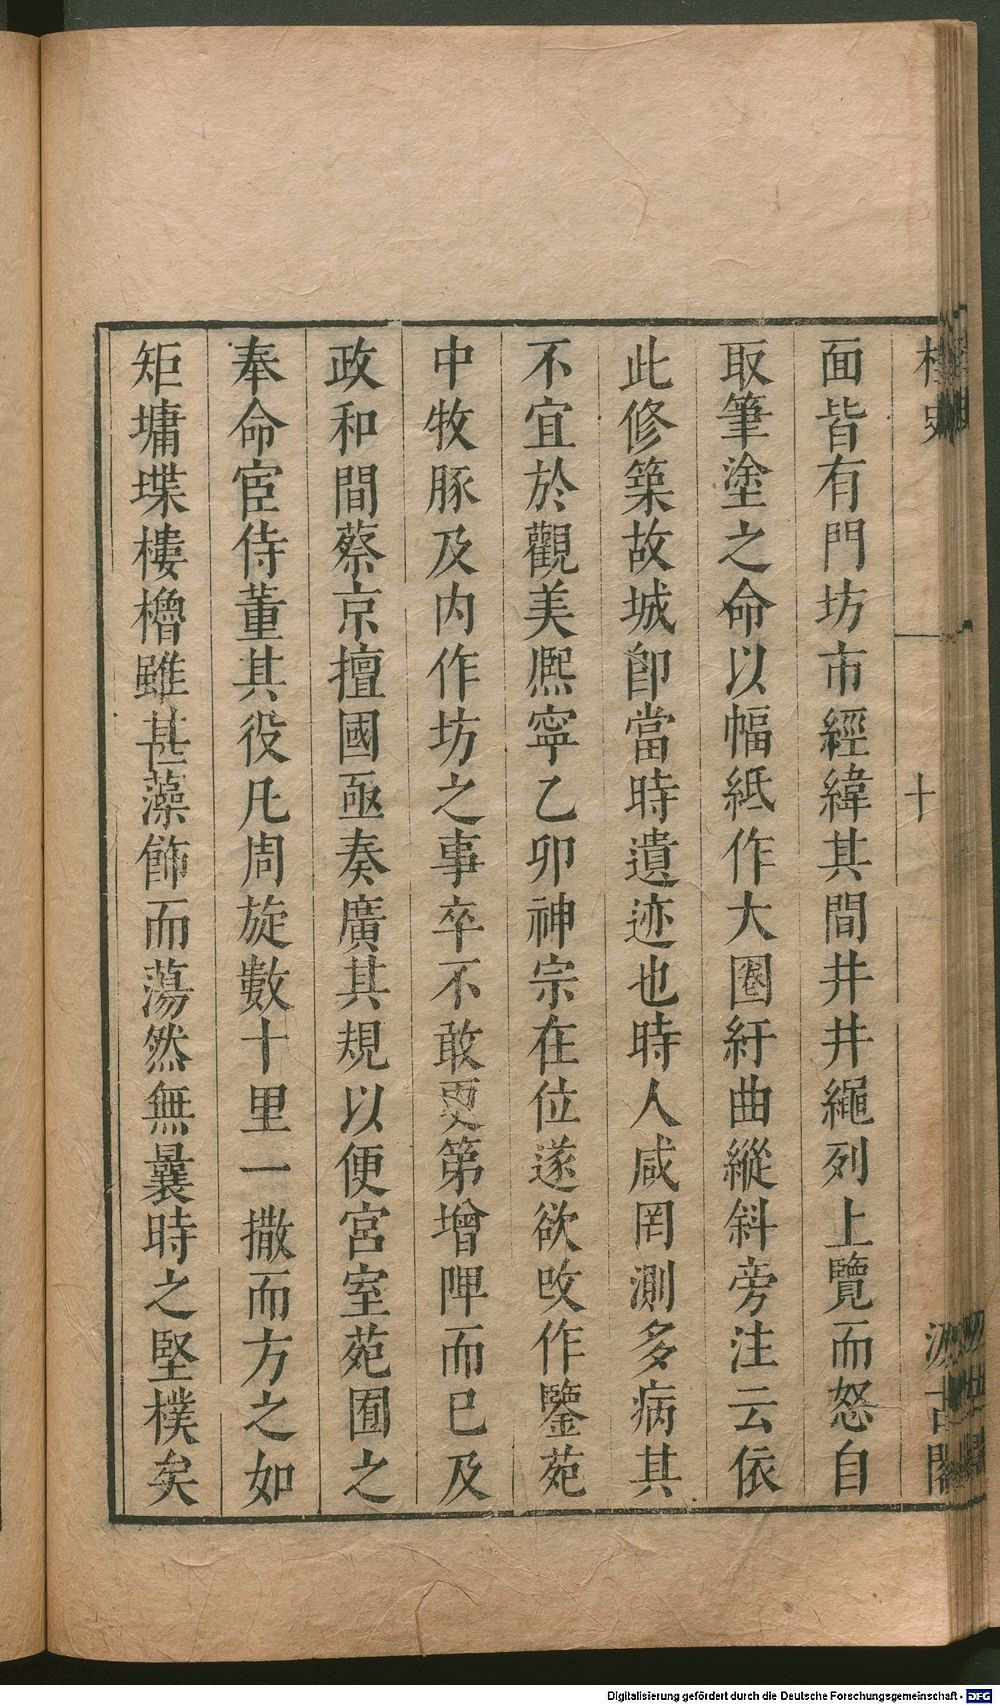 十
面皆有門坊市經緯其間井井繩列上覽而怒自
取筆塗之命以幅紙作大圈紆曲縱斜旁注云依
此修築故城卽當時遺迹也時人咸罔測多病其
不宜於觀美熈寧乙卯神宗在位遂欲攺作鑒苑
中牧豚及内作坊之事卒不敢更第增陴而已及
政和間蔡京擅國亟奏廣其規以便宮室苑囿之
奉命宦侍董其役凡周旋數十里一撒而方之如
矩墉堞樓櫓雖甚藻飾而蕩然無曩時之堅樸矣
Digitalisierung gefördert durch die Deutsche Forschungsgemeinschaft - DFG